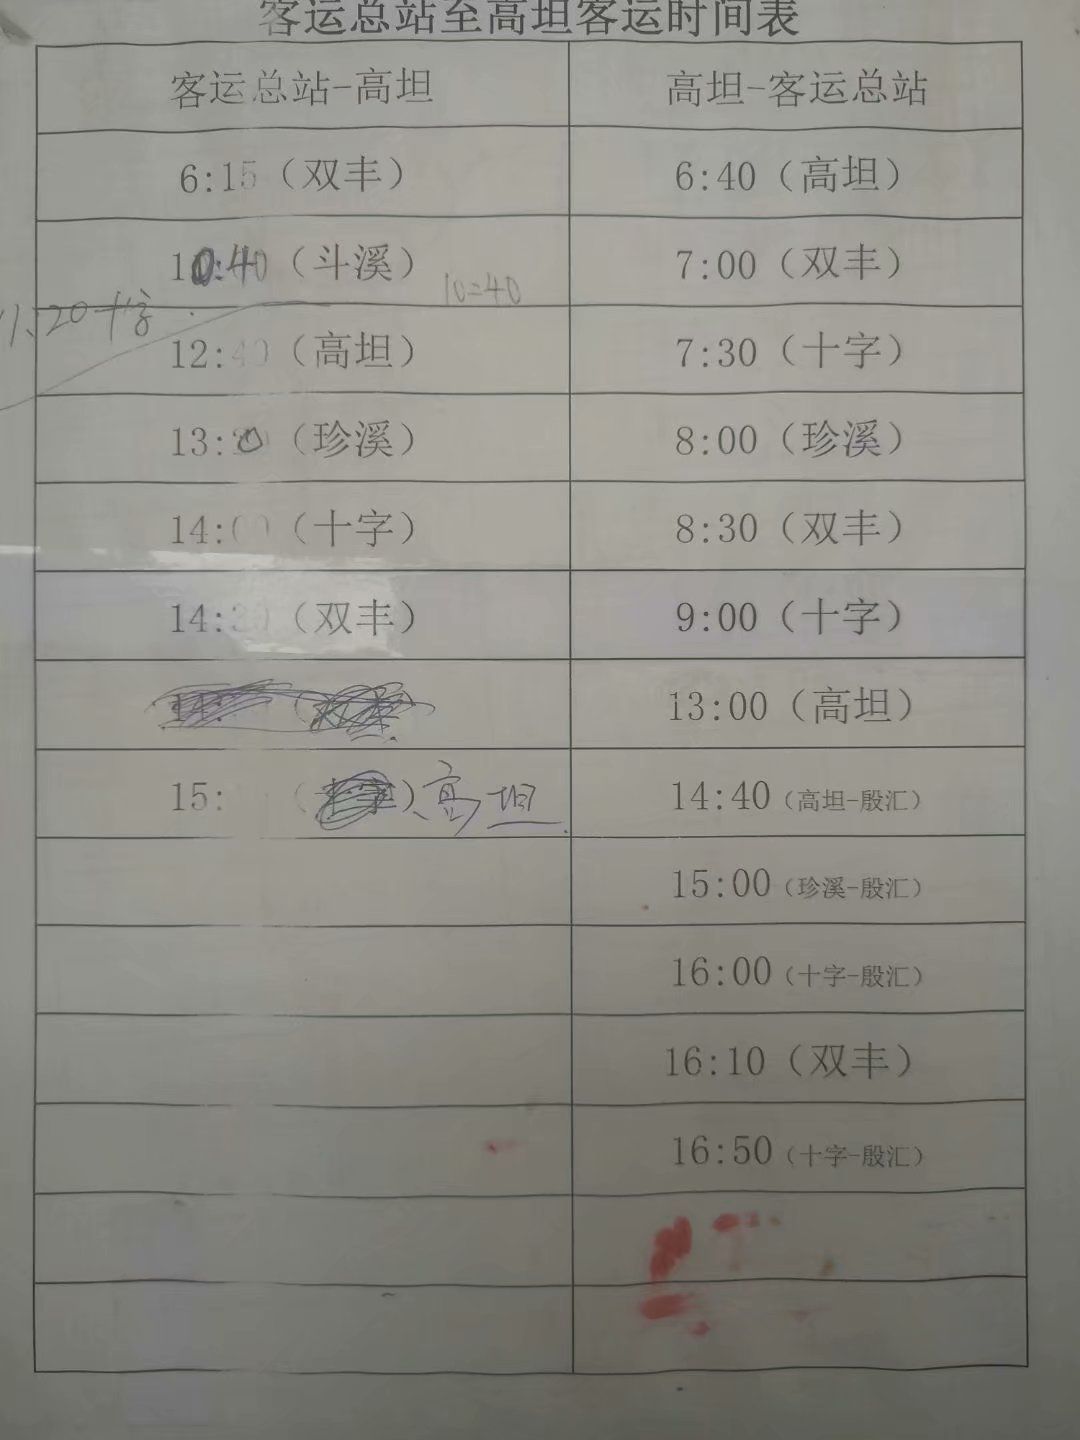 客运总站至高坦客运时间表
客运总站-高坦 高坦-客运总站
6:15（双丰） 6:40（高坦）
10:40（斗溪） 10=40 7:00（双丰）
20十字
12:40（高坦） 7:30（十字）
（珍溪） 8:00（珍溪）
14:00（十字） 8:30（双丰）
（双丰） 9:00（十字）
13:00（高坦）
15: 高坦 14:40（高坦-殷汇）
15:00（珍溪-殷汇）
16:00（十字-殷汇）
16:10（双丰）
16:50（十字-殷汇）